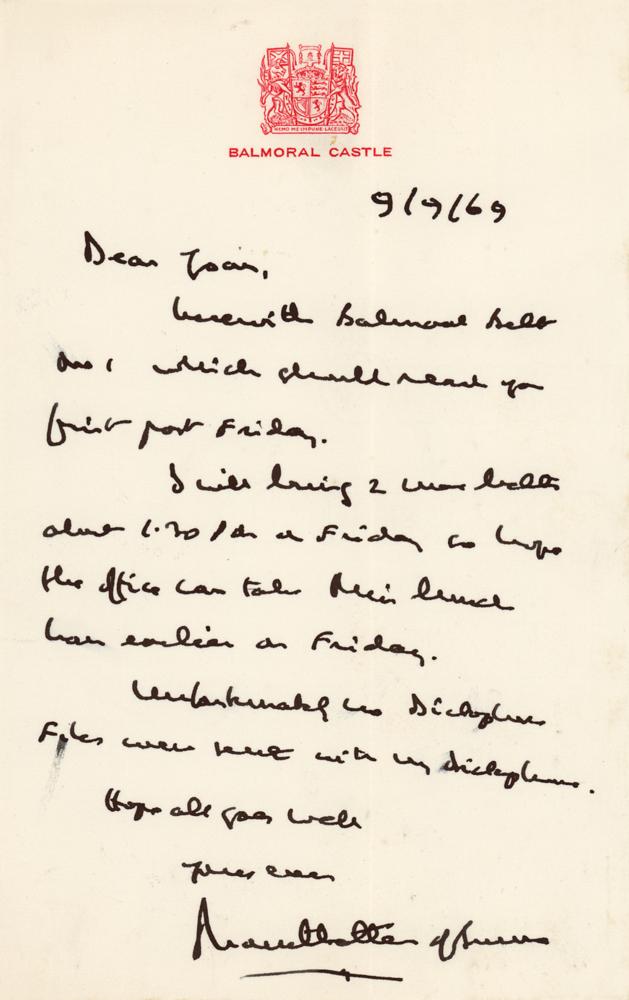 NEMO ME IMPUNE LACESSIT
BALMORAL CASTLE
9/9/69
Dear Joan,
herewith Balmoral Belt
No 1 which should reach you
first post Friday.
I will bring 2 more belts
about 1.30 PM on Friday so hope
the office can take their lunch
hour earlier on Friday.
Unfortunately no Dictaphone
Files were sent with my Dictaphone.
Hope all goes well
yours ever
Mountbatten of Burma